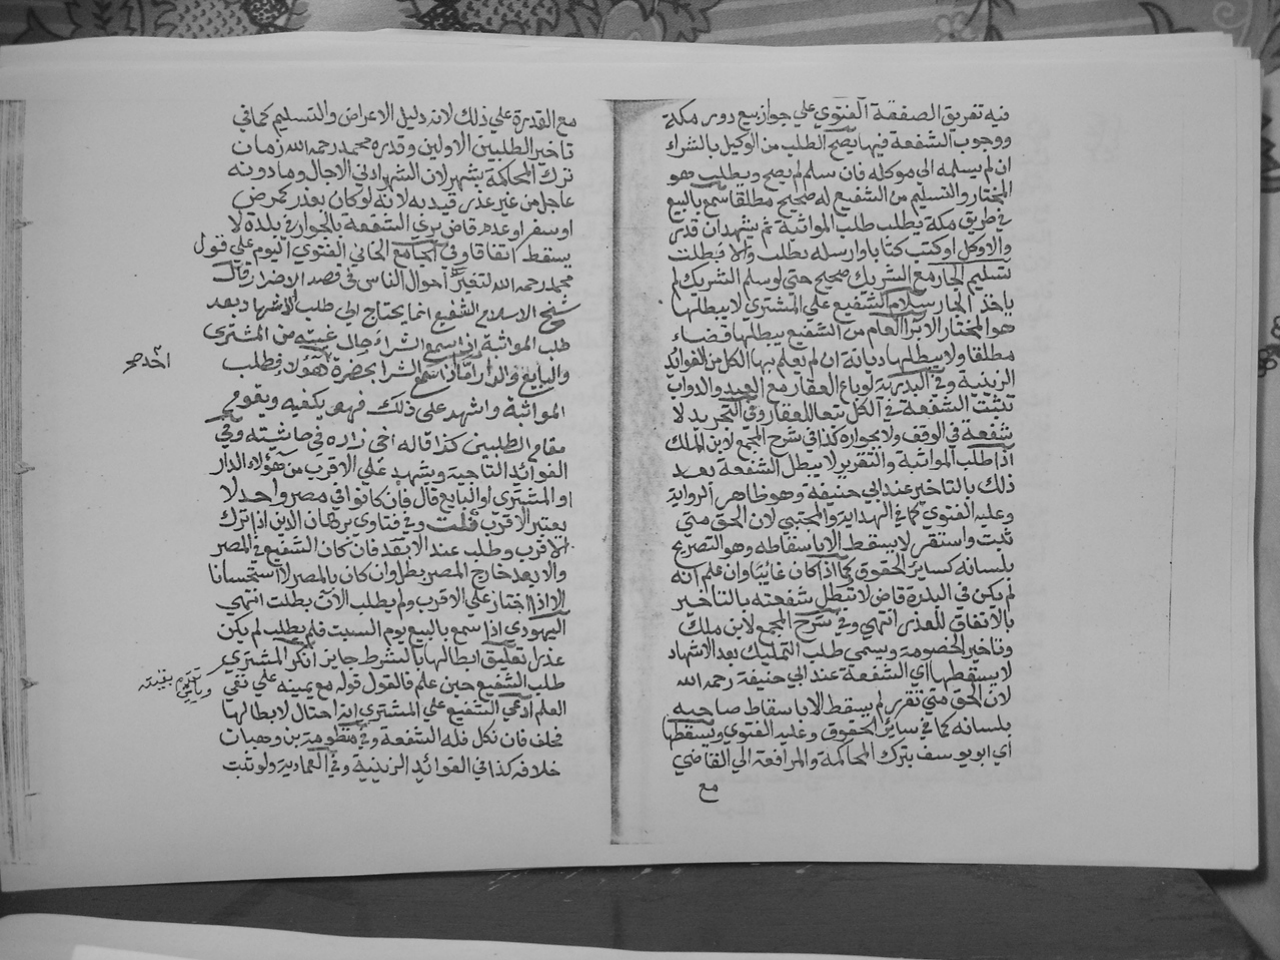 فيه تفريق الصفقة الفتوي علي جواز بيع دور مكة
ووجوب الشفعة فيها يصح الطلب من الوكيل بالشراء
ان لم يسلمه الي موكله فان سلم لم يصح وبطلب هو
المختار والتسليم من الشفيع له صحيح مطلقا سمع بالبيع
في طريق مكة يطلب طلب المواثبة ثم يشهد ان قدر
والا وكل او كتب كتابا وارسله بطلب والا فبطلت
تسليم الجار مع الشريك صحيح حتي لو سلم الشريك لم
ياخذ الجار سلام الشفيع علي المشتري لا يبطلها
هو المختار الابرا العام من الشفيع يبطلها قضاء
مطلقا ولا يبطلها ديانة ان لم يعلم بها الكل من الفوائد
الزينية وفي البدرية لو باع العقار مع العبيد والدواب
تثبت الشفعة في الكل تبعا للعقار وفي التجريد لا
شفعة في الوقف ولا بجواره كذا في شرح المجمع لابن الملك
اذا طلب المواثبة والتقرير لا يبطل الشفعة بعد
ذلك بالتاخير عند ابي حنيفة وهو ظاهر الرواية
وعليه الفتوي كما في الهداية والمجتبي لان الحق متي
ثبت واستقر لا يسقط الا باسقاطه وهو التصريح
بلسانه كسائر الحقوق كما اذا كان غائبا وان علم انه
لم يكن في البلدة قاض لا تبطل شفعته بالتاخير
بالاتفاق للعذر انتهي وفي شرح المجمع لابن ملك
وتاخير الخصومة ويسمي طلب التمليك بعد الاشهاد
لا يسقطها اي الشفعة عند ابي حنيفة رحمه الله
لان الحق متي تقرر لم يسقط الا باسقاط صاحبه
بلسانه كما في سائر الحقوق وعليه الفتوي ويسقطها
اي ابو يوسف بترك المحاكمة والمرافعة الي القاضي
مع
مع القدرة علي ذلك لانه دليل الاعراض والتسليم كما في
تاخير الطلبين الاولين وقدره محمد رحمه الله زمان
ترك المحاكمة بشهر لان الشهر ادني الاجال وما دونه
عاجل من غير عذر قيد به لانه لو كان بعذر كمرض
او سفر او عدم قاض يري الشفعة بالجوار في بلدة لا
يسقط اتفاقا وفي الجامع الخاني الفتوي اليوم علي قول
محمد رحمه الله لتغير احوال الناس في قصد الاضرار قال
شيخ الاسلام الشفيع انما يحتاج الي طلب الاشهاد بعد
طلب المواثبة ان سمع الشراء حال غيبته من المشتري
والبايع والدار اما اذا سمع الشرا بحضرة هؤلاء فطلب
المواثبة واشهد علي ذلك فهو يكفيه ويقوم
مقام الطلبين كذا قاله اخي زاده في حاشيته وفي
الفوائد التاجية ويشهد علي الاقرب من هؤلاء الدار
او المشتري او البايع قال فان كانوا في مصر واحد لا
يعتبر الاقرب قلت وفي فتاوي برهان الدين اذا ترك
الاقرب وطلب عند الابعد فان كان الشفيع في المصر
والابعد خارج المصر بطل وان كان بالمصر لا استحسانا
الا اذا اختار علي الاقرب ولم يطلب الان بطلت انتهي
اليهودي اذا سمع بالبيع يوم السبت فلم يطلب لم يكن
عذرا تعليق ابطالها بالشرط جايز انكر المشتري
طلب الشفيع حين علم فالقول قوله مع يمينه علي نفي
العلم ادعي الشفيع علي المشتري انه احتال لابطالها
فحلف فان نكل فله الشفعة وفي منظومة بن وهبان
خلافه كذا في الفوائد الزينية وفي العمادية ولو ثبت